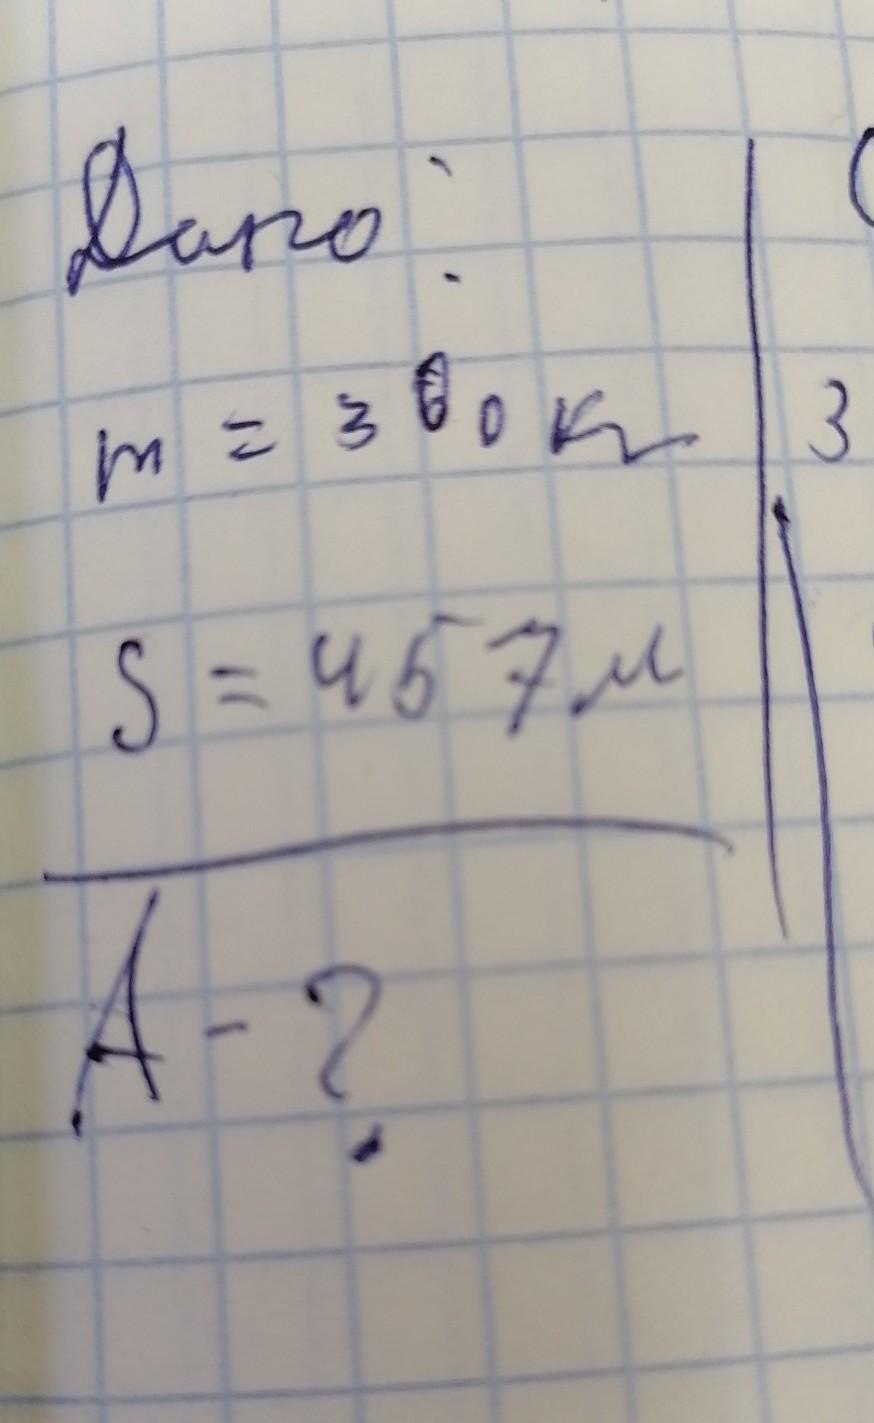 Дано:
m = 300 кг
S = 457 м
A - ?